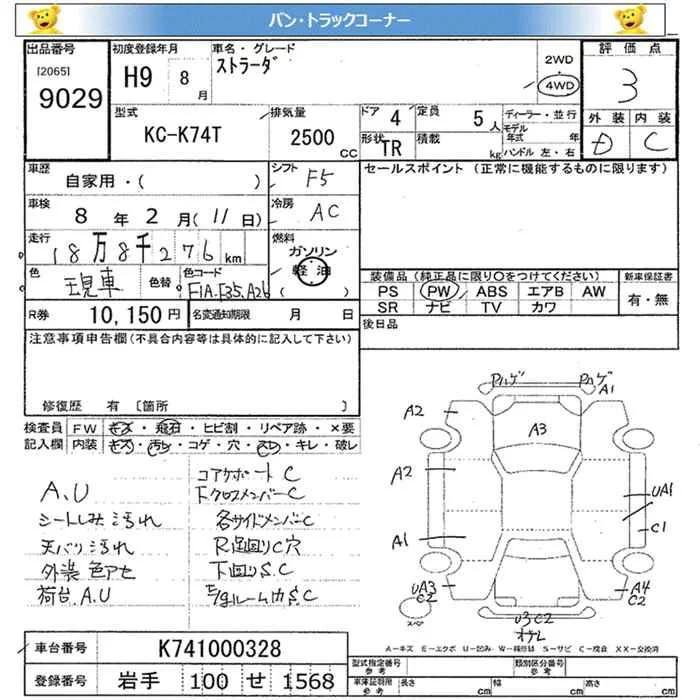 バン・トラックコーナー
出品番号
[2065]
9029
初度登録年月
H9 8月
車名・グレード
ストラーダ
2WD
4WD
評価点
3
外装 内装
D C
型式
KC-K74T
排気量
2500 CC
ドア 4
定員 5人
形状 TR
積載 kg
ディーラー・並行
モデル年式 年
ハンドル 左・右
車歴
自家用・( )
シフト F5
セールスポイント (正常に機能するものに限ります)
車検
8年2月(11日)
冷房 AC
走行
18万8千276km
燃料
ガソリン
軽油
色
現車
色替
色コード
F1A.F35.A26
装備品(純正品に限り○をつけてください)
新車保証書
PS PW ABS エアB AW
SR ナビ TV カワ
有・無
R券 10,150円
名変通知期限 月 日
後日品
注意事項申告欄(不具合内容等は具体的に記入して下さい)
修復歴 有 〔箇所 〕
検査員記入欄
FW キズ・飛石・ヒビ割・リペア跡・×要
内装 キズ・汚レ・コゲ・穴・スレ・キレ・破レ
A.U
シートしみ汚れ
天バリ汚れ
外装 色アセ
荷台 A.U
コアサポートC
Fクロスメンバー C
各サイドメンバーC
R足回りC穴
下回りS.C
E/gルーム内S.C
A1
A2
A3
A2
UA1
C1
A1
UA3
C2
A4
C2
U3C2
スペア
A-キズ E-エクボ U-凹み W-補修跡 S-サビ C-腐食 XX-交換済
車台番号 K741000328
登録番号 岩手 100 せ 1568
型式指定番号 参考
類別区分番号 参考
車庫証明用 参考
長さ cm
幅 cm
高さ cm